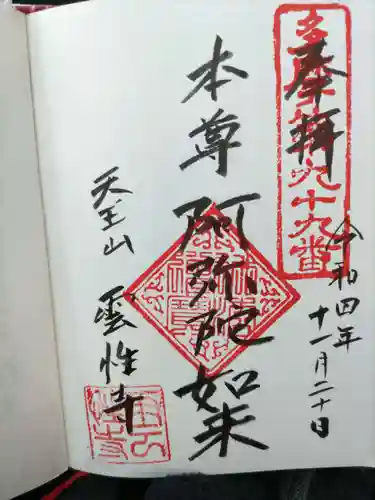 奉拝
令和四年
十一月二十日
本尊
阿弥陀如来
天王山
雲性寺